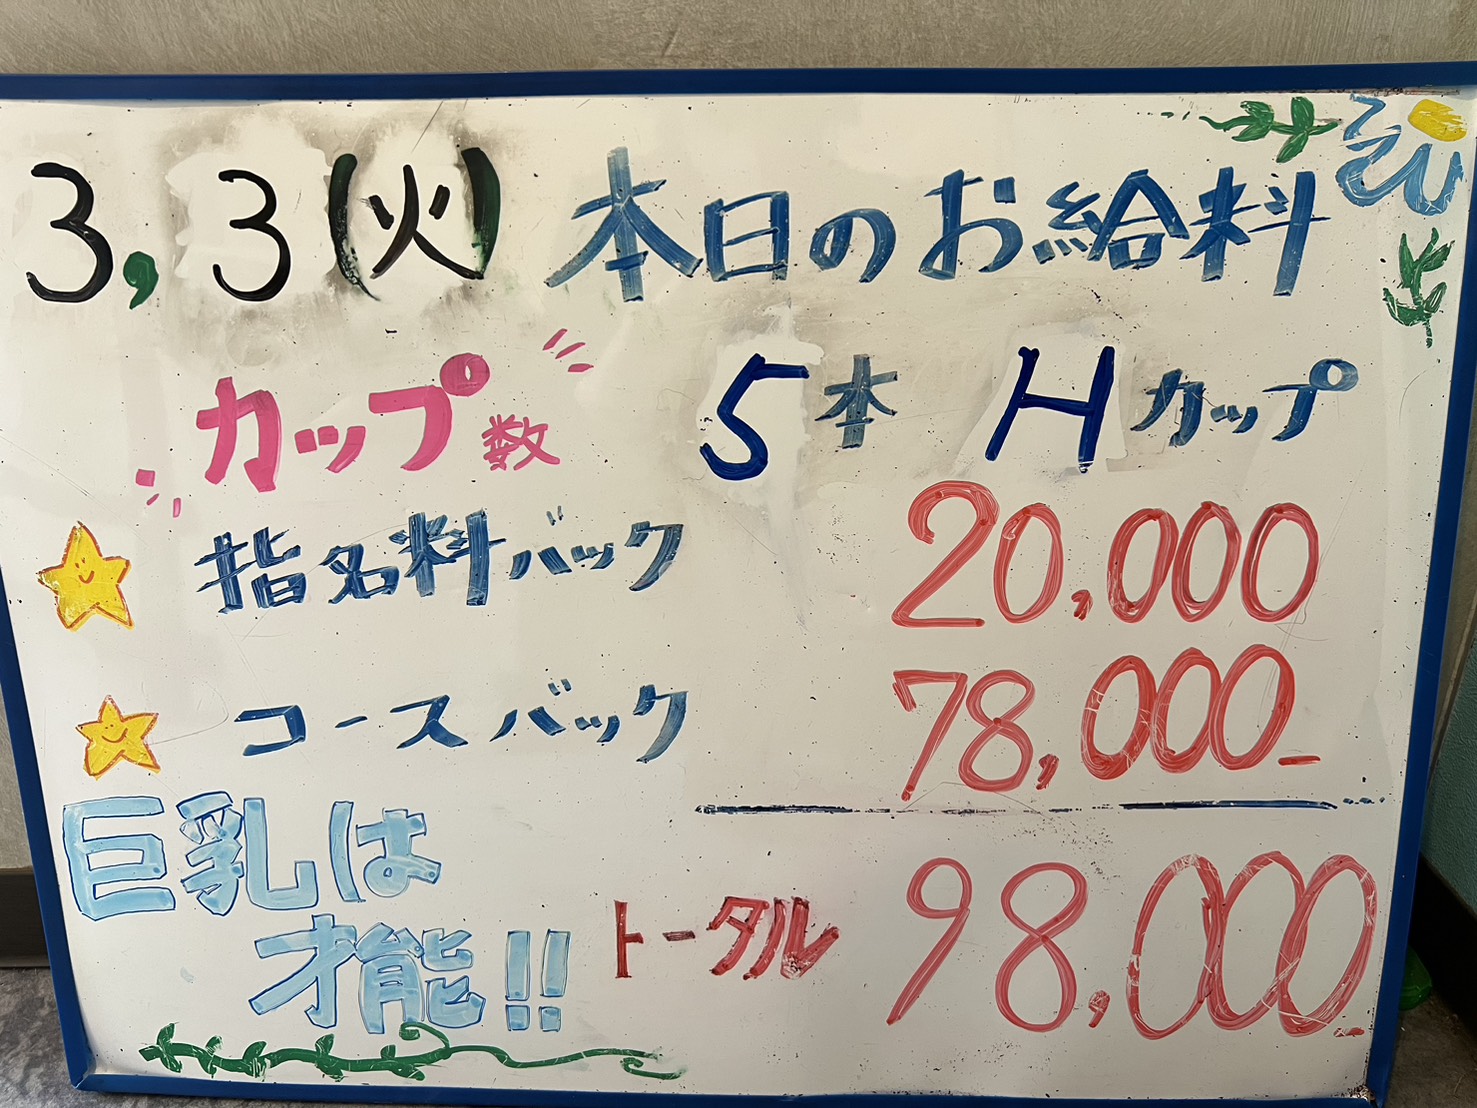 3,3(火) 本日のお給料
カップ数 5本 Hカップ
指名料バック 20,000
コースバック 78,000-
巨乳は
才能!!
トータル 98,000-